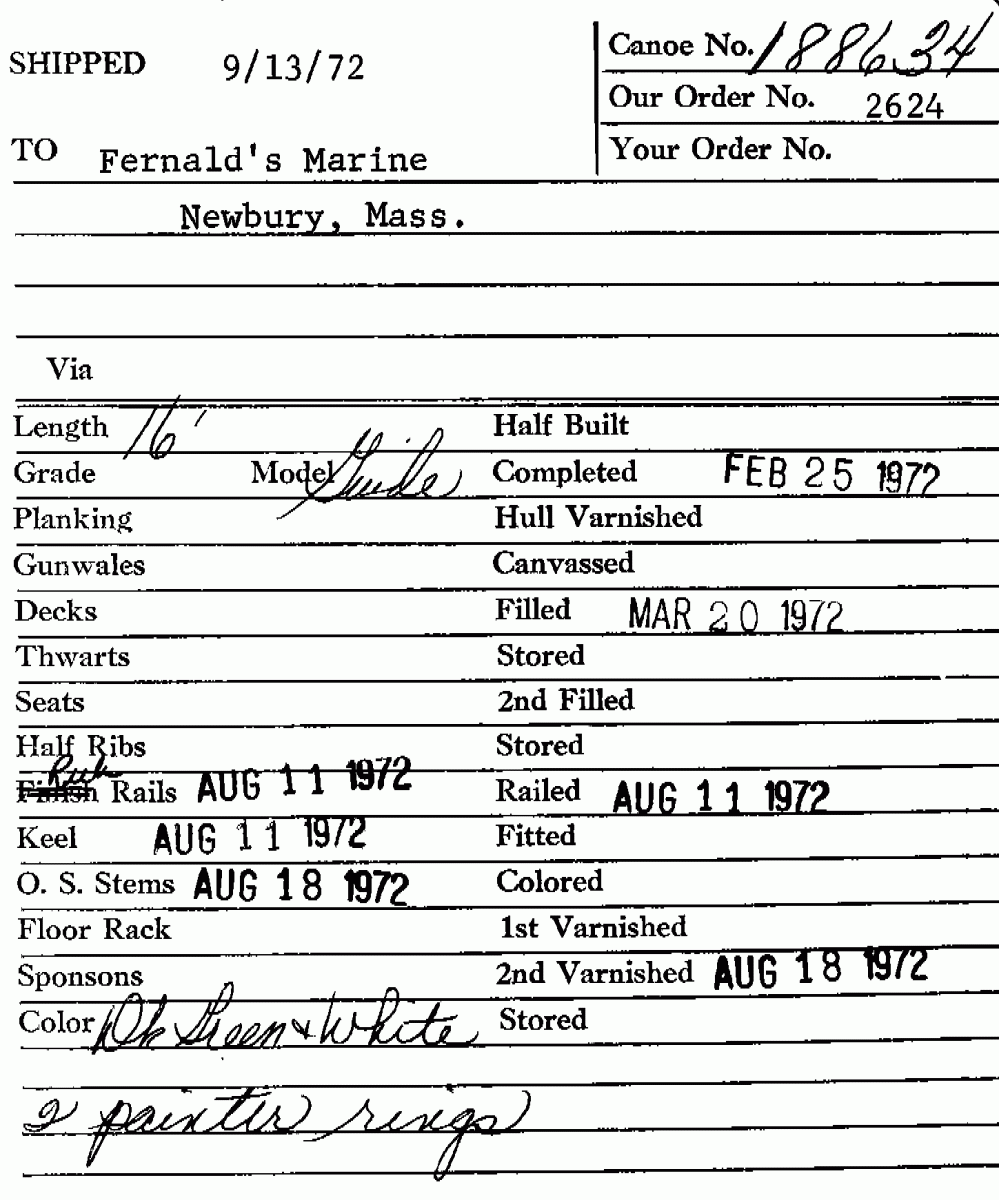 SHIPPED 9/13/72 Canoe No. 188634
Our Order No. 2624
TO Fernald's Marine Your Order No.
Newbury, Mass.
Via
Length 16' Half Built
Grade Model Guide Completed FEB 25 1972
Planking Hull Varnished
Gunwales Canvassed
Decks Filled MAR 20 1972
Thwarts Stored
Seats 2nd Filled
Half Ribs Stored
Rub
Finish Rails AUG 11 1972 Railed AUG 11 1972
Keel AUG 11 1972 Fitted
O. S. Stems AUG 18 1972 Colored
Floor Rack 1st Varnished
Sponsons 2nd Varnished AUG 18 1972
Color Dk Green & White Stored
2 painter rings